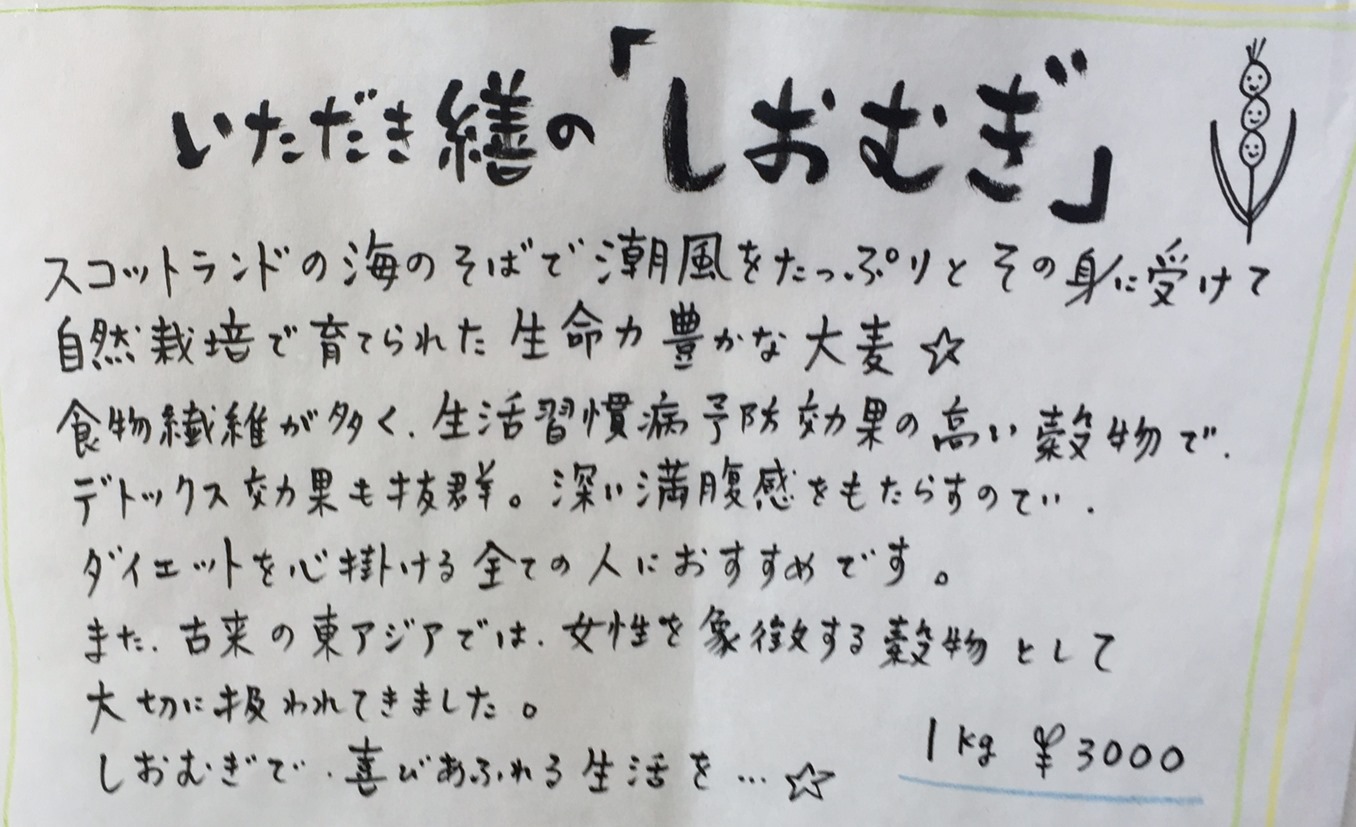 いただき繕の「しおむぎ」
スコットランドの海のそばで潮風をたっぷりとその身に受けて
自然栽培で育てられた生命力豊かな大麦☆
食物繊維が多く、生活習慣病予防効果の高い穀物で、
デトックス効果も抜群。深い満腹感をもたらすので、
ダイエットを心掛ける全ての人におすすめです。
また、古来の東アジアでは、女性を象徴する穀物として
大切に扱われてきました。
しおむぎで、喜びあふれる生活を…☆
1kg ¥3000